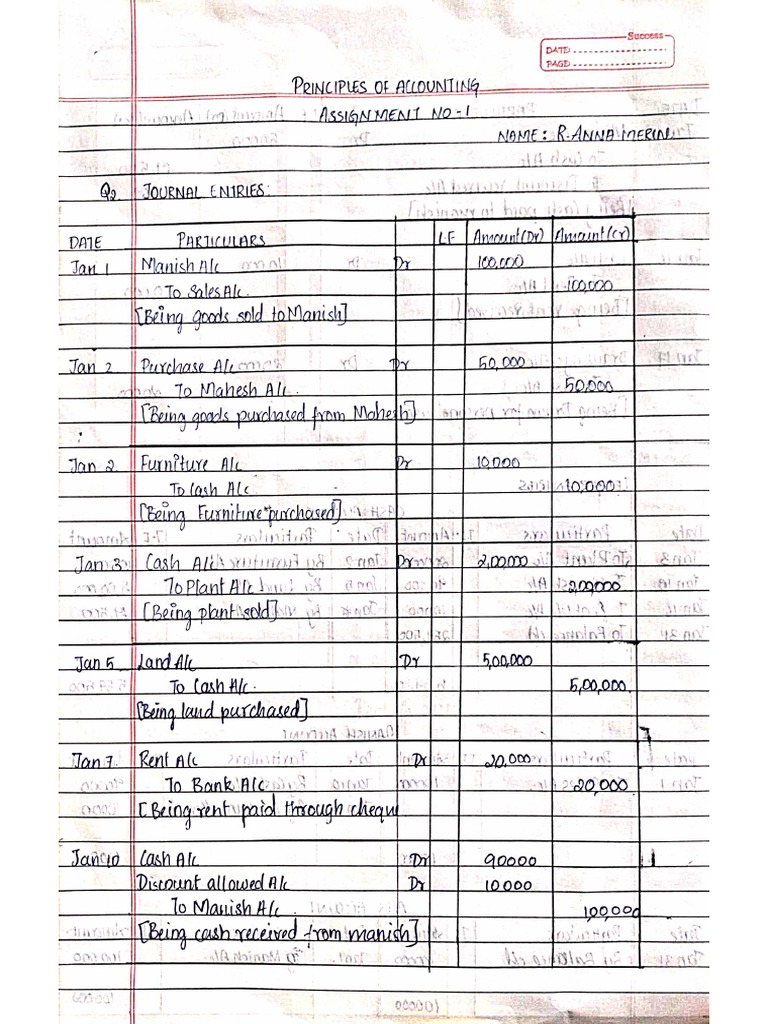 Success
DATE:
PAGE:
PRINCIPLES OF ACCOUNTING
ASSIGNMENT NO-1
NAME: R.ANNA MERIN
Q2. JOURNAL ENTRIES:
DATE PARTICULARS LF Amount(Dr) Amount(Cr)
Jan 1 Manish A/c Dr 100,000
To Sales A/c. 100,000
[Being goods sold to Manish]
Jan 2 Purchase A/c Dr 50,000
To Mahesh A/c. 50,000
[Being goods purchased from Mahesh]
Jan 2. Furniture A/c Dr 10,000
To Cash A/c. 10,000
[Being Furniture purchased]
Jan 3 Cash A/c Dr 2,00,000
To Plant A/c 200,000
[Being plant sold]
Jan 5 Land A/c Dr 5,00,000
To Cash A/c. 5,00,000
[Being land purchased]
Jan 7 Rent A/c Dr 20,000
To Bank A/c 20,000
[Being rent paid through cheque
Jan 10 Cash A/c Dr 90000
Discount allowed A/c Dr 10000
To Manish A/c. 100,000
[Being cash received from manish]